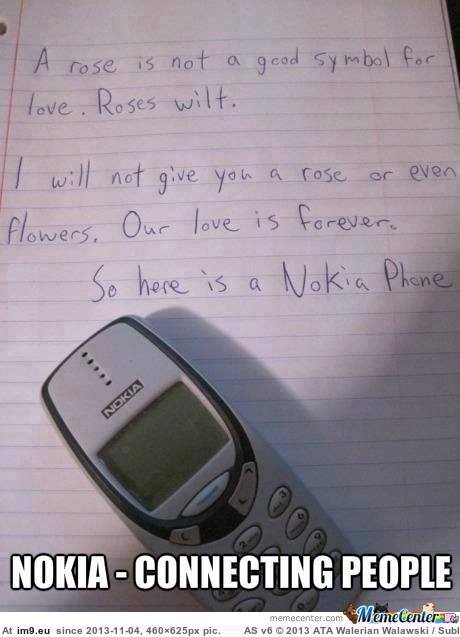 A rose is not a good symbol for
love. Roses wilt.
I will not give you a rose or even
flowers. Our love is forever.
So here is a Nokia Phone
NOKIA
NOKIA - CONNECTING PEOPLE
memecenter.com MemeCenter
At im9.eu since 2013-11-04, 460×625px pic. AS v6 © 2013 ATA Walerian Walawski / Subl